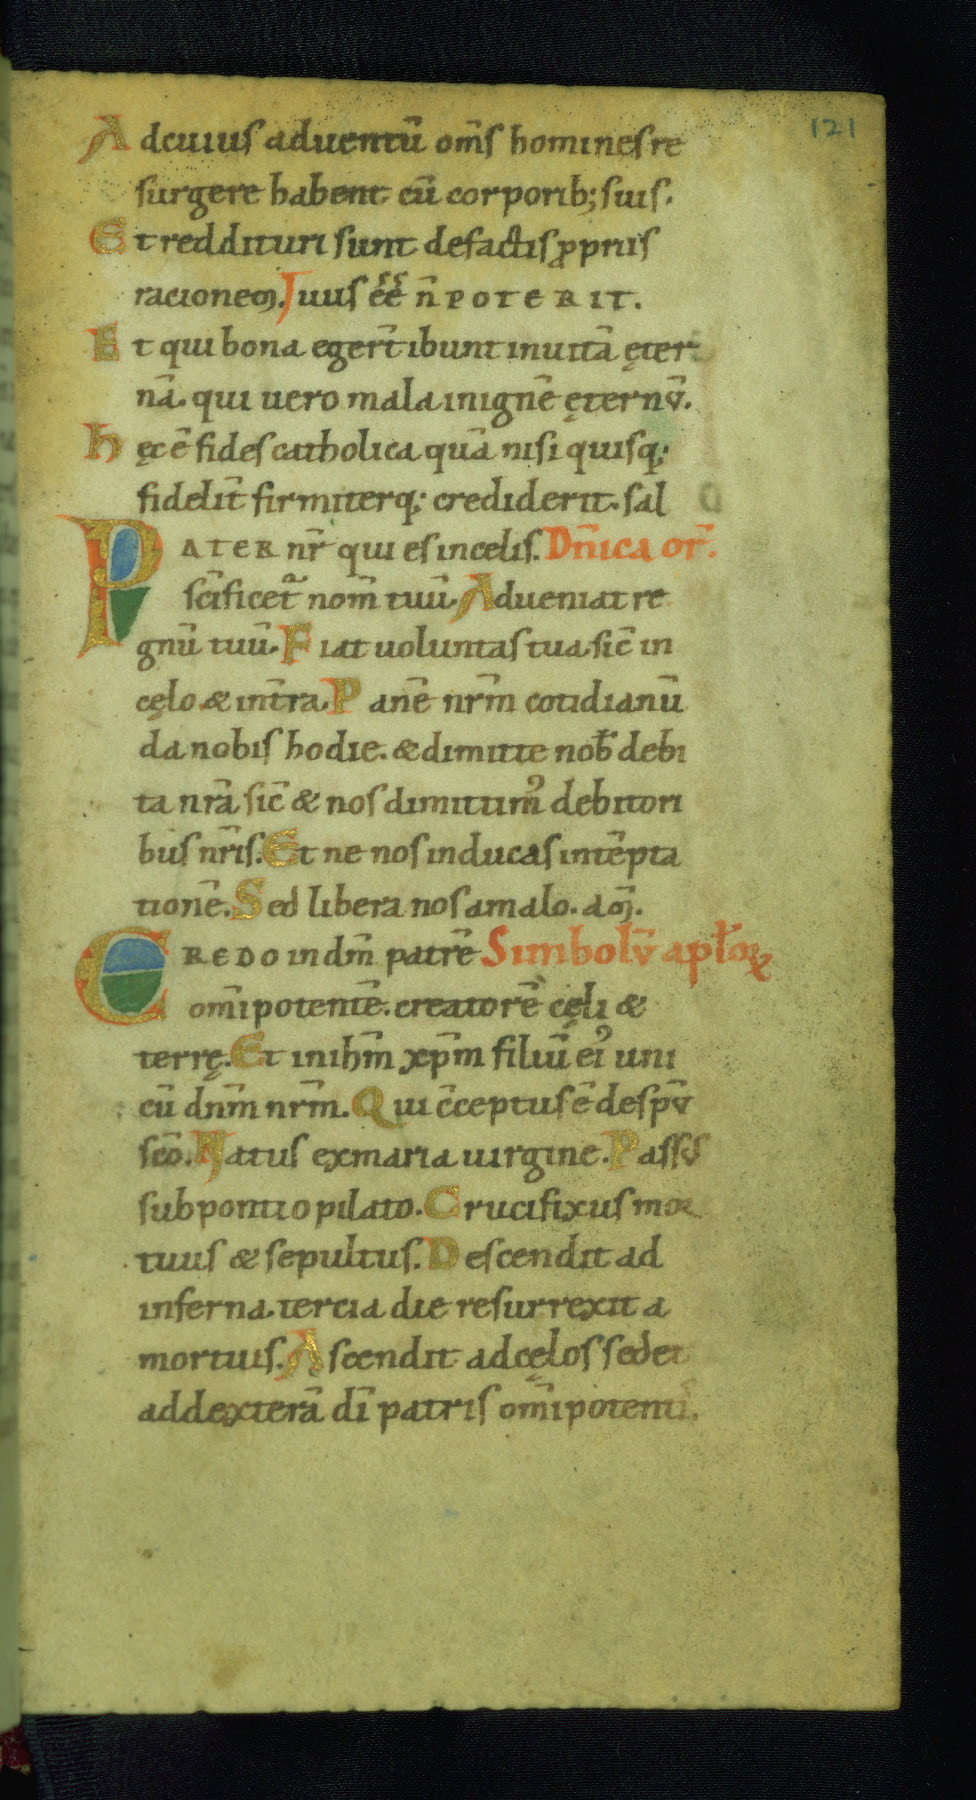 121
Ad cuius aduentū om̄s homines re
surgere habent cū corporib; suis.
Et reddituri sunt de factis ꝓpriis
racionem. Juus éé n̄ POTERIT.
Et qui bona egerr̄t ibunt in uitā ęter
nā. qui uero mala in ignē ęternv̄.
Hęc ē fides catholica quā nisi quisq;
fidelit̄ firmiterq; crediderit. sal
PATER nr̄ qui es in celis. Dn̄ica or̄.
sc̄ificet̄ nom̄ tuū. Adueniat re
gnū tuū. Fiat uoluntas tua. sic̄ in
cęlo & in t̄ra. Panē nr̄m cotidianū
da nobis hodie. & dimitte nob̄ debi
ta nr̄a sic̄ & nos dimittim᾿ debitori
bus nr̄is. Et ne nos inducas in tēpta
tionē. Sed libera nos a malo. am̄.
CREDO in dm̄ patrē Simbolv̄ apl̄oꝝ
om̄ipotentē. creatorē cęli &
terrę. Et in ihm̄ xp̄m filiū ei᾿ uni
cū dn̄m nr̄m. Qui c̄ceptus ē de spv̄
scō. Natus ex maria uirgine. Passvs
sub pontio pilato. Crucifixus mor
tuus & sepultus. Descendit ad
inferna. tercia die resurrexit a
mortuis. Ascendit ad cęlos sedet
ad dexterā dī patris om̄ipotentis.